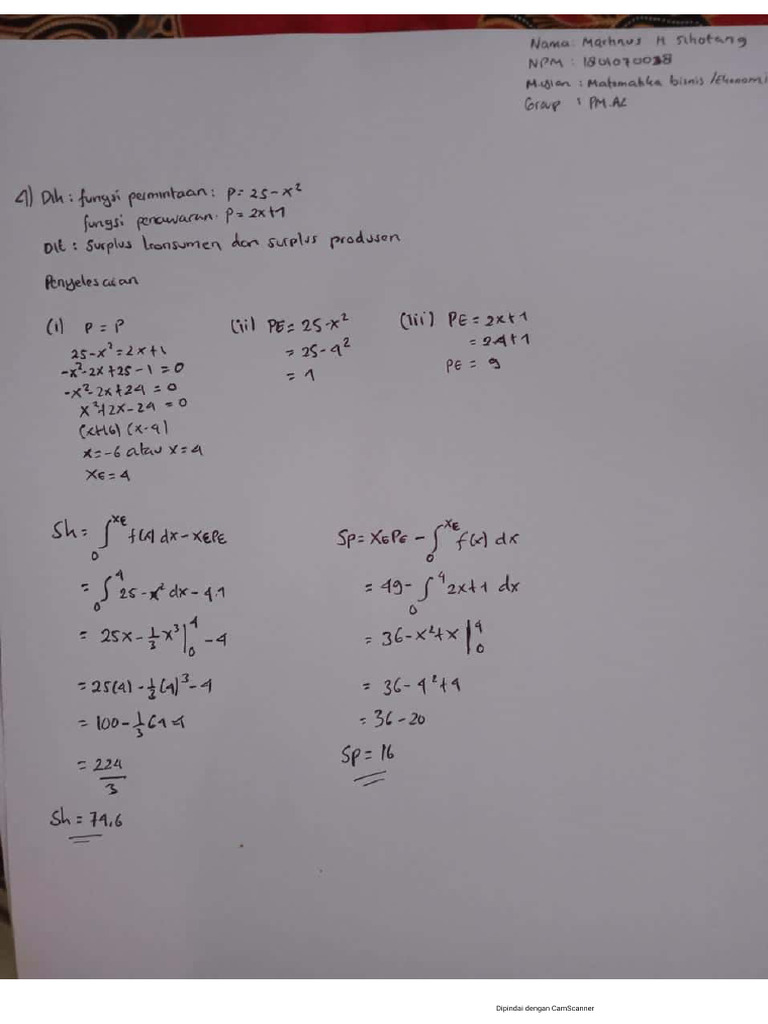 Nama: Marhnus H Sihotang
NPM : 1801070038
Matematika bisnis/Ekonomi
Group : PM.AL
4) Dik : fungsi permintaan : P = 25 - x²
fungsi penawaran. P = 2x+1
Dit : Surplus konsumen dan surplus produsen
Penyelesaian
(i) P = P
25-x² = 2x+1
-x²-2x+25-1 = 0
-x²-2x+24 = 0
x²+2x-24 = 0
(x+6) (x-4)
x=-6 atau x=4
XE = 4
(ii) PE = 25-x²
= 25-4²
= 1
(iii) PE = 2x+1
= 2.4+1
PE = 9
Sk = ∫₀^XE f(x) dx - XEPE
= ∫₀⁴ 25-x² dx - 4.1
= 25x - 1/3 x³ |₀⁴ - 4
= 25(4) - 1/3 (4)³ - 4
= 100 - 1/3 64-4
= 224/3
Sk = 74,6
Sp = XEPE - ∫₀^XE f(x) dx
= 49 - ∫₀⁴ 2x+1 dx
= 36-x²+x |₀⁴
= 36-4²+4
= 36-20
Sp = 16
Dipindai dengan CamScanner